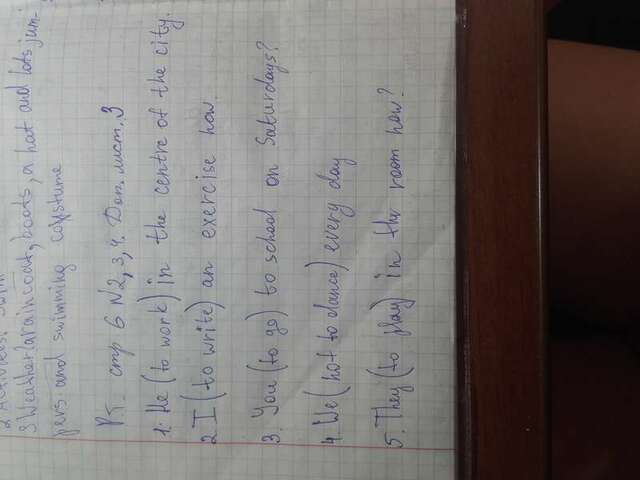 2 Activities: Swim
3 Weather: a raincoat, boots, a hat and lots jum-
pers and swimming costume
РТ. стр 6 N2, 3, 4. Доп. лист. 3
1. He (to work) in the centre of the city.
2. I (to write) an exercise now.
3. You (to go) to school on Saturdays?
4. We (not to dance) every day
5. They (to play) in the room now?